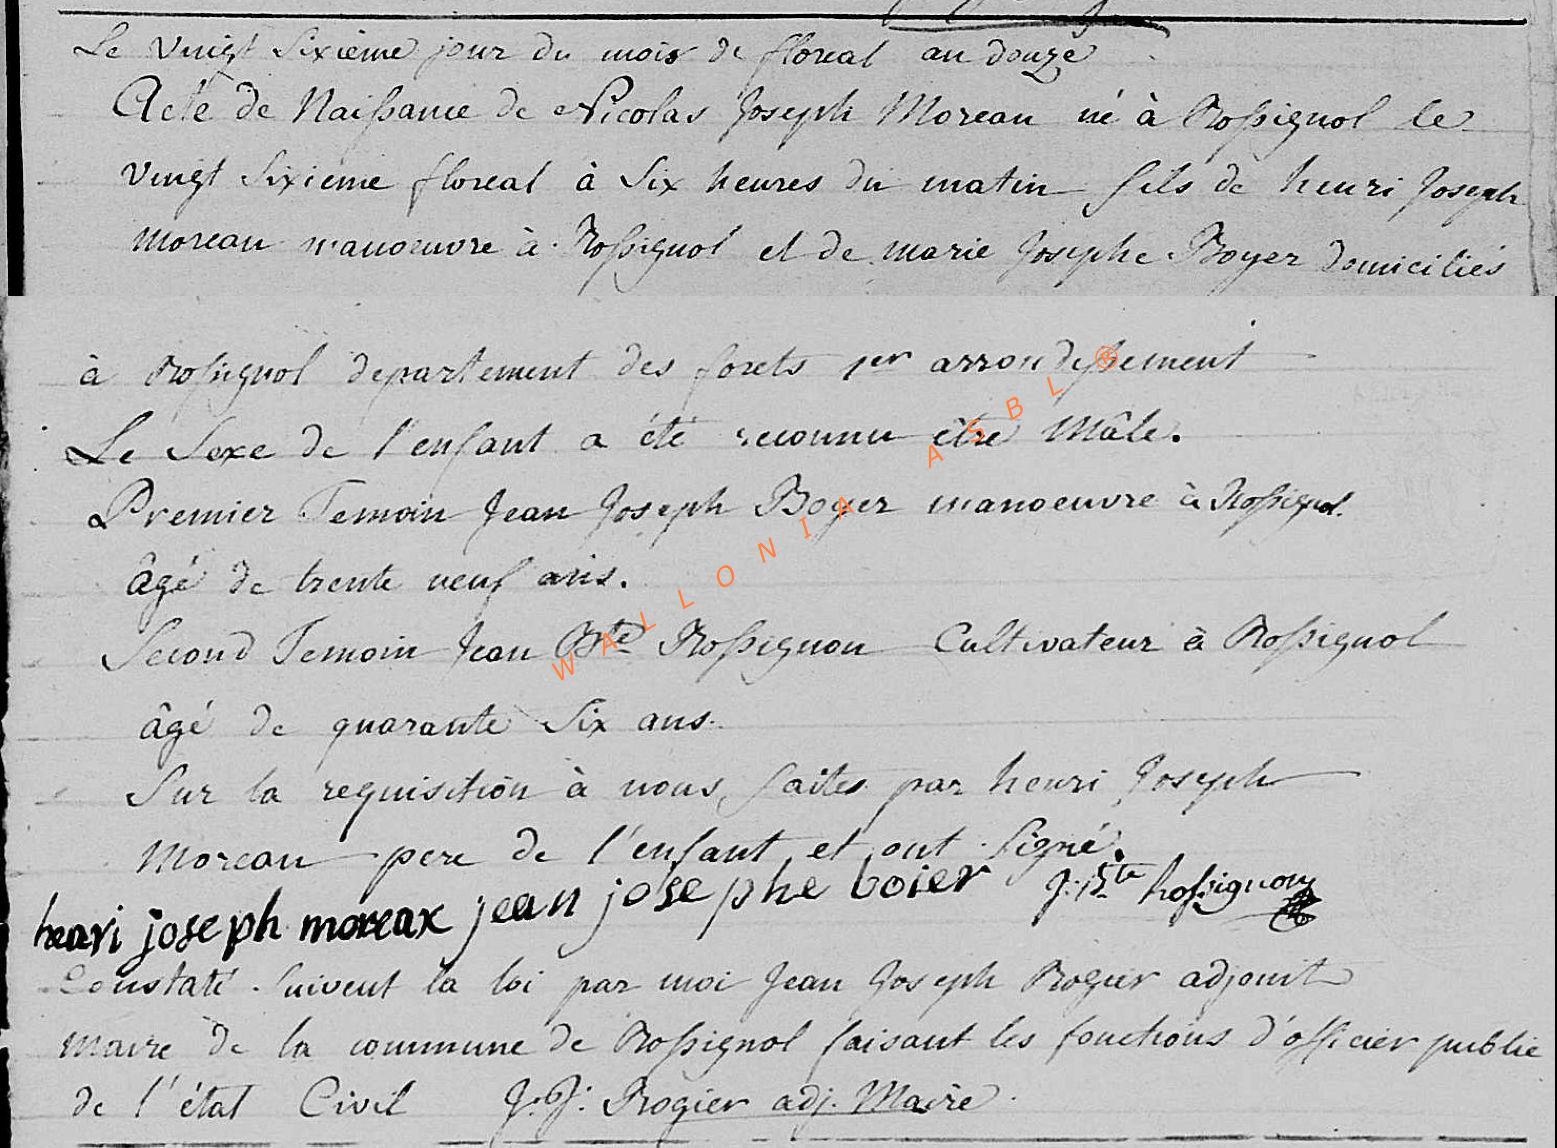 Le vingt Sixième jour du mois de floreal an douze
Acte de Naissance de Nicolas Joseph Moreau né à Rossignol le
vingt Sixieme floreal à Six heures du matin fils de henri Joseph
moreau manoeuvre à Rossignol et de marie Josephe Boyer domiciliés
à Rossignol departement des forets 1er arrondissement
Le Sexe de l'enfant a été reconnu être Mâle.
Premier Temoin Jean Joseph Boyer manoeuvre à Rossignol.
âgé de trente neuf ans.
Second Temoin Jean Bte Rossignon Cultivateur à Rossignol
âgé de quarante Six ans.
Sur la requisition à nous faites par henri Joseph
Moreau pere de l'enfant et ont Signé.
henri joseph moreax jean josephe boier J: Bte Rossignon
Constaté Suivent la loi par moi Jean Joseph Rogier adjoint
maire de la commune de Rossignol faisant les fonctions d'officier public
de l'état Civil J. J: Rogier adj. Maire.
WALLONIA ASBL ®